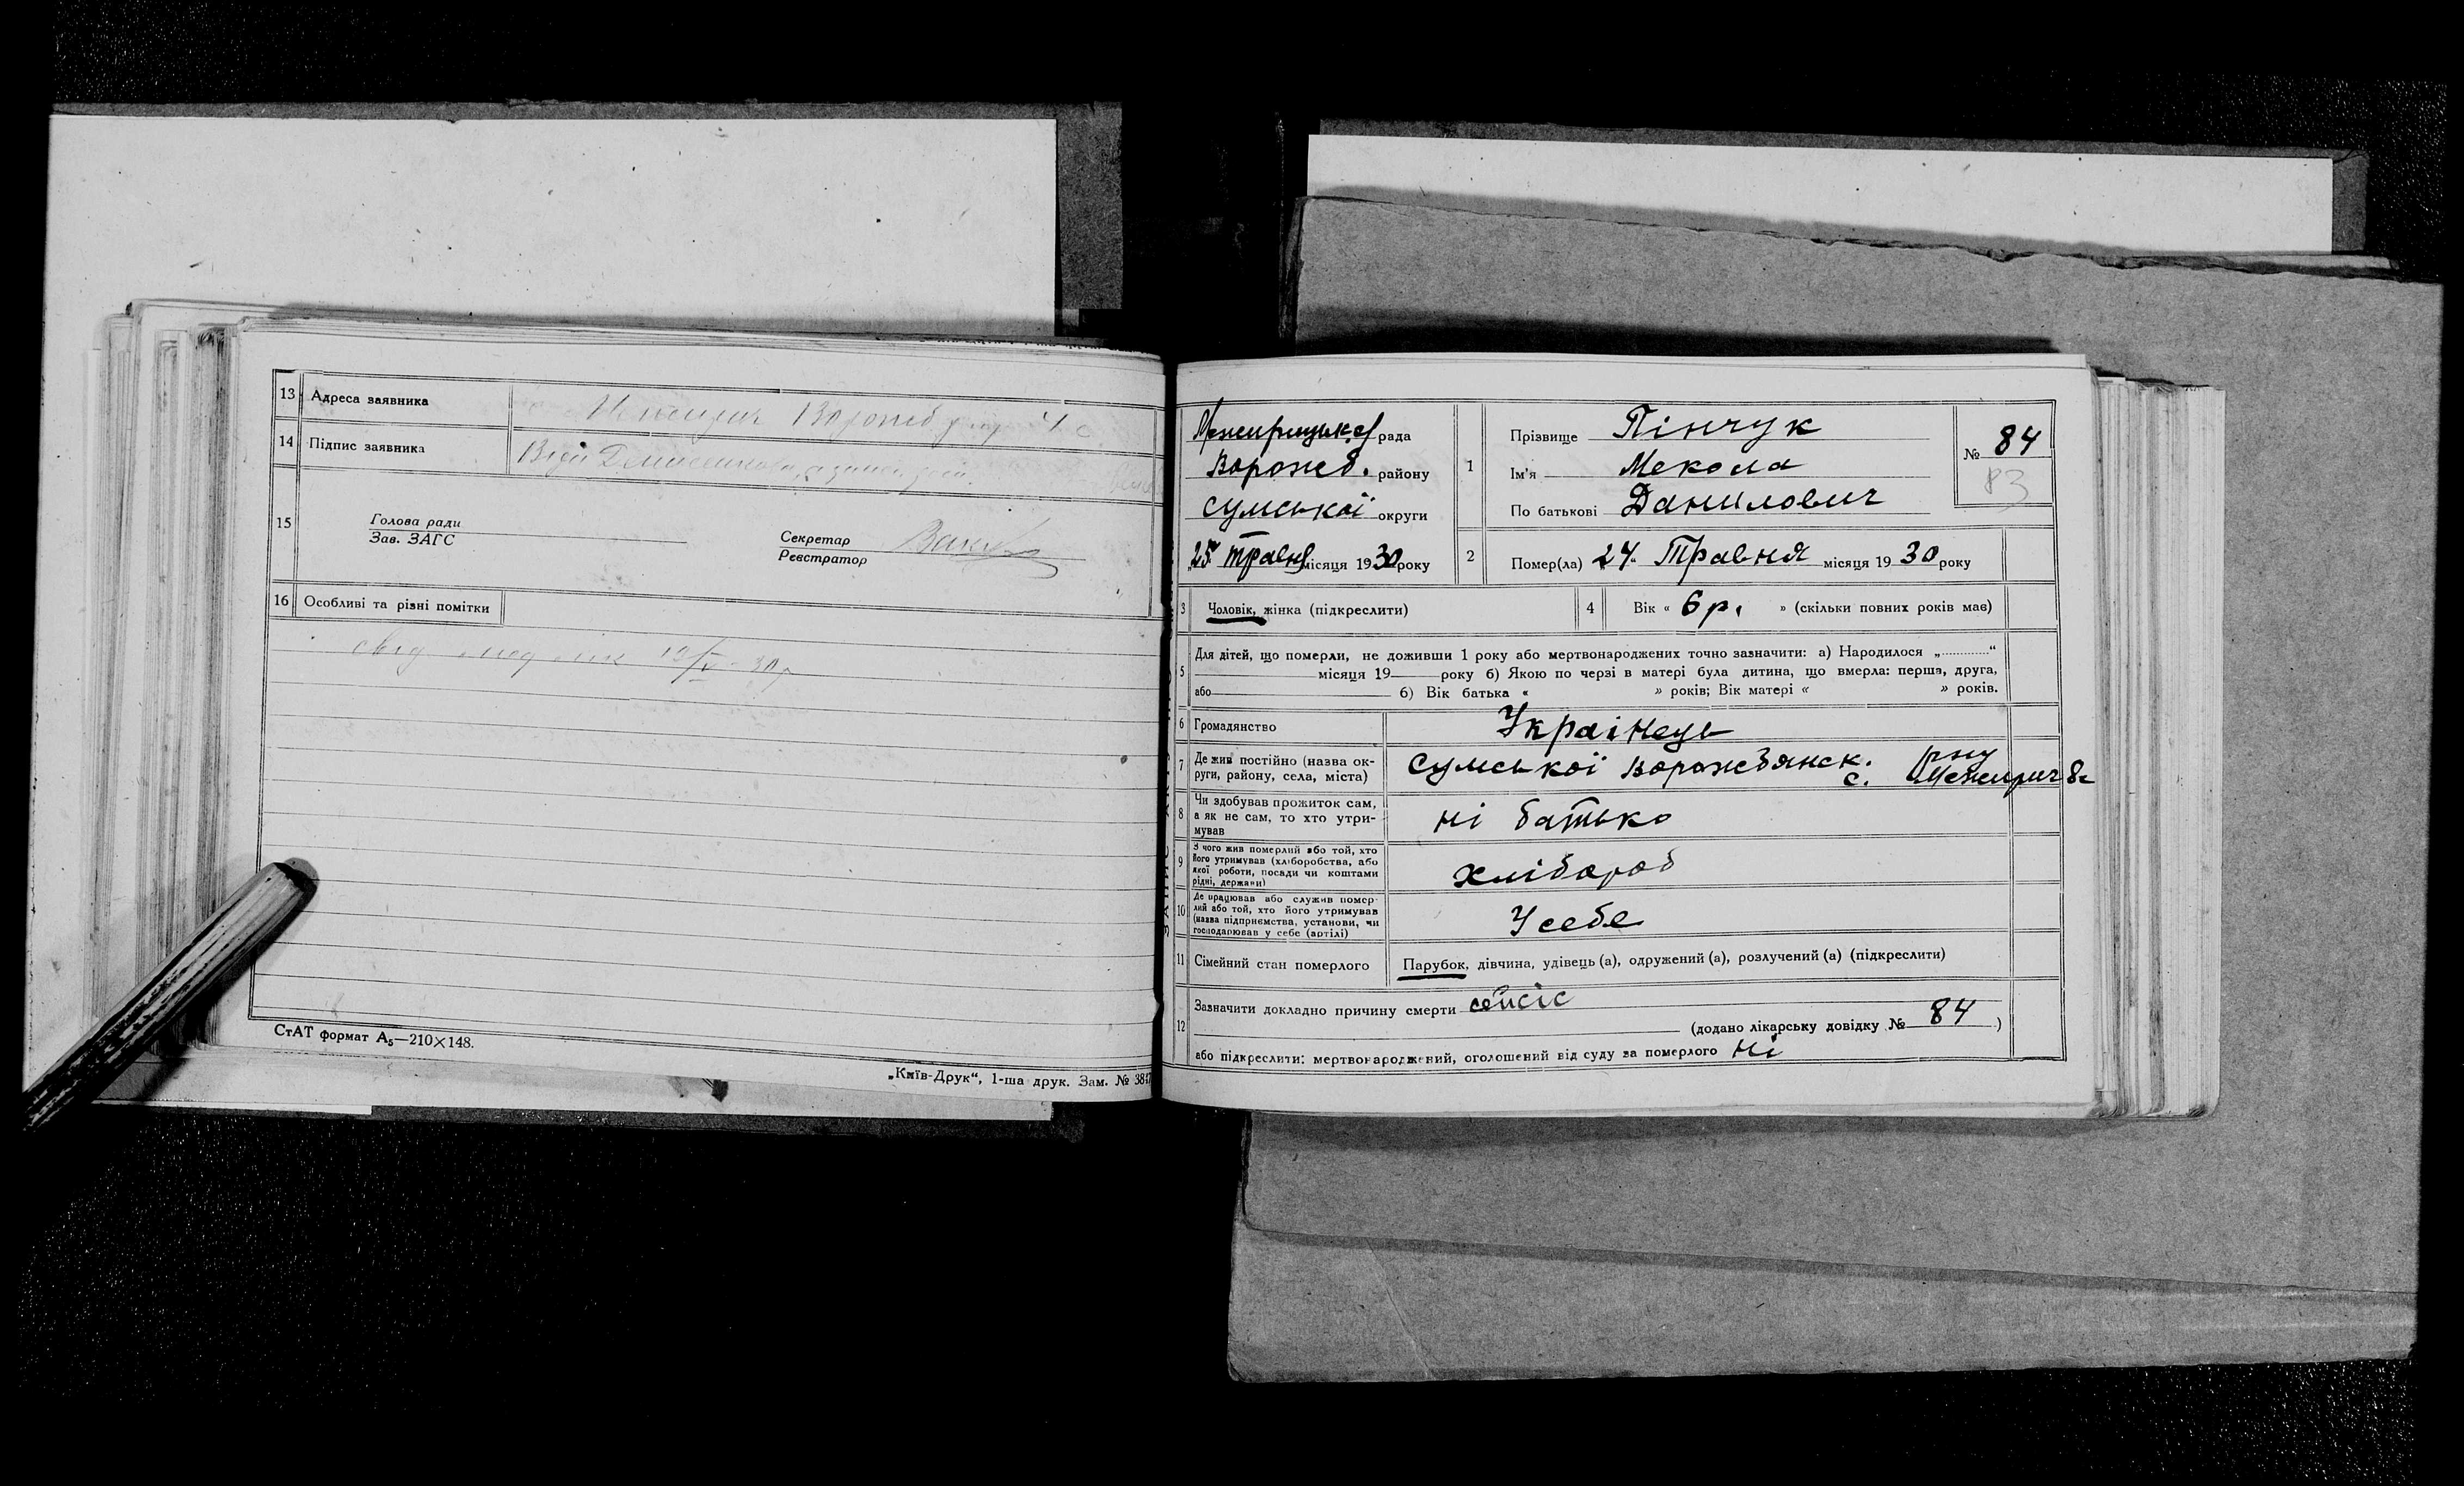 13 Адреса заявника
14 Підпис заявника
15 Голова ради
Зав. ЗАГС
Секретар
Реєстратор
16 Особливі та різні помітки
СтАТ формат А₅—210×148.
„Київ-Друк“, 1-ша друк. Зам. №
рада
Ворожб. району
Сумської округи
„25“ травня місяця 1930 року
1 Прізвище Пінчук
Ім'я Мекола
По батькові Данилович
№ 84
83
2 Помер(ла) 24 Травня місяця 1930 року
3 Чоловік, жінка (підкреслити)
4 Вік « 6 р. » (скільки повних років має)
5 Для дітей, що померли, не доживши 1 року або мертвонароджених точно зазначити: а) Народилося „............“
місяця 19 року б) Якою по черзі в матері була дитина, що вмерла: перша, друга,
або б) Вік батька « » років; Вік матері « » років.
6 Громадянство Украінець
7 Де жив постійно (назва ок-
руги, району, села, міста) Сумськоі Ворожбянск. рну
с. Межирич 8с
8 Чи здобував прожиток сам,
а як не сам, то хто утри-
мував ні батько
9 З чого жив померлий або той, хто
його утримував (хліборобства, або
якої роботи, посади чи коштами
рідні, держави) хлібороб
10 Де працював або служив помер-
лий або той, хто його утримував
(назва підприємства, установи, чи
господарював у себе (артілі) У себе
11 Сімейний стан померлого Парубок, дівчина, удівець (а), одружений (а), розлучений (а) (підкреслити)
12 Зазначити докладно причину смерти сепсіс
(додано лікарську довідку № 84)
або підкреслити: мертвонароджений, оголошений від суду за померлого ні